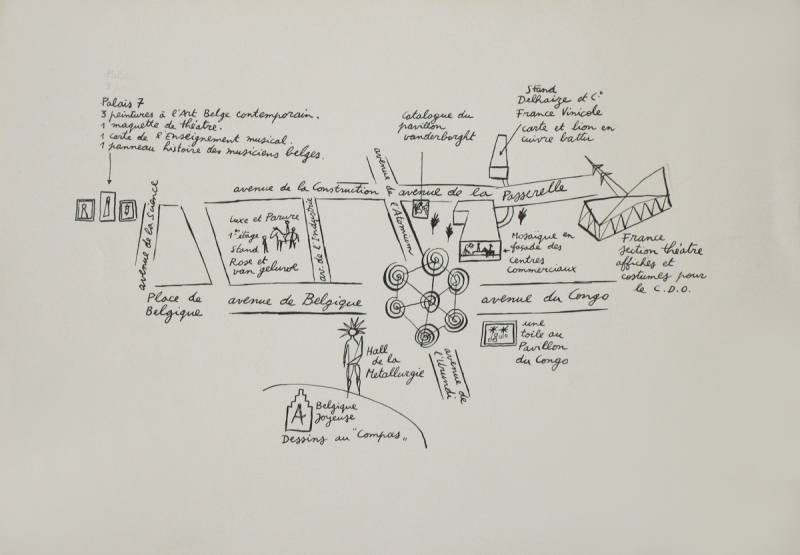 Palais 7
3 peintures à l'Art Belge contemporain.
1 maquette de théatre.
1 carte de l'Enseignement musical.
1 panneau histoire des musiciens belges.
Catalogue du
pavillon
vanderborght
Stand
Delhaize et Cº
France Vinicole
carte et lion en
cuivre battu
avenue de la Science
avenue de la Construction
avenue de l'Atomium
avenue de la Passerelle
Luxe et Parure
1er étage
Stand
Rose et
van geluwe
av. de l'Industrie
Mosaïque en
façade des
centres
commerciaux
France
section théatre
affiches et
costumes pour
le C.D.O.
Place de
Belgique
avenue de Belgique
avenue du Congo
une
toile au
Pavillon
du Congo
Hall
de la
Metallurgie
avenue de
l'Urundi
A
Belgique
Joyeuse
Dessins au "Compas"